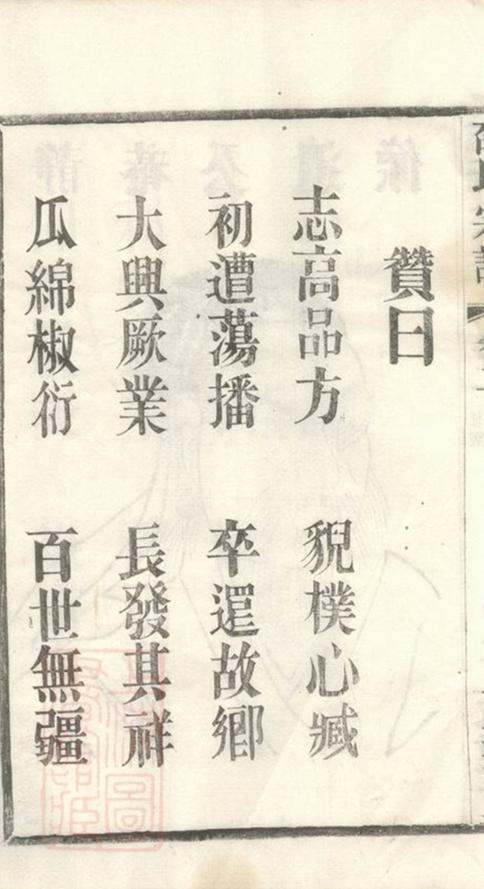 贊曰
志高品方　貌樸心臧
初遭蕩播　卒還故鄉
大興厥業　長發其祥
瓜綿椒衍　百世無疆